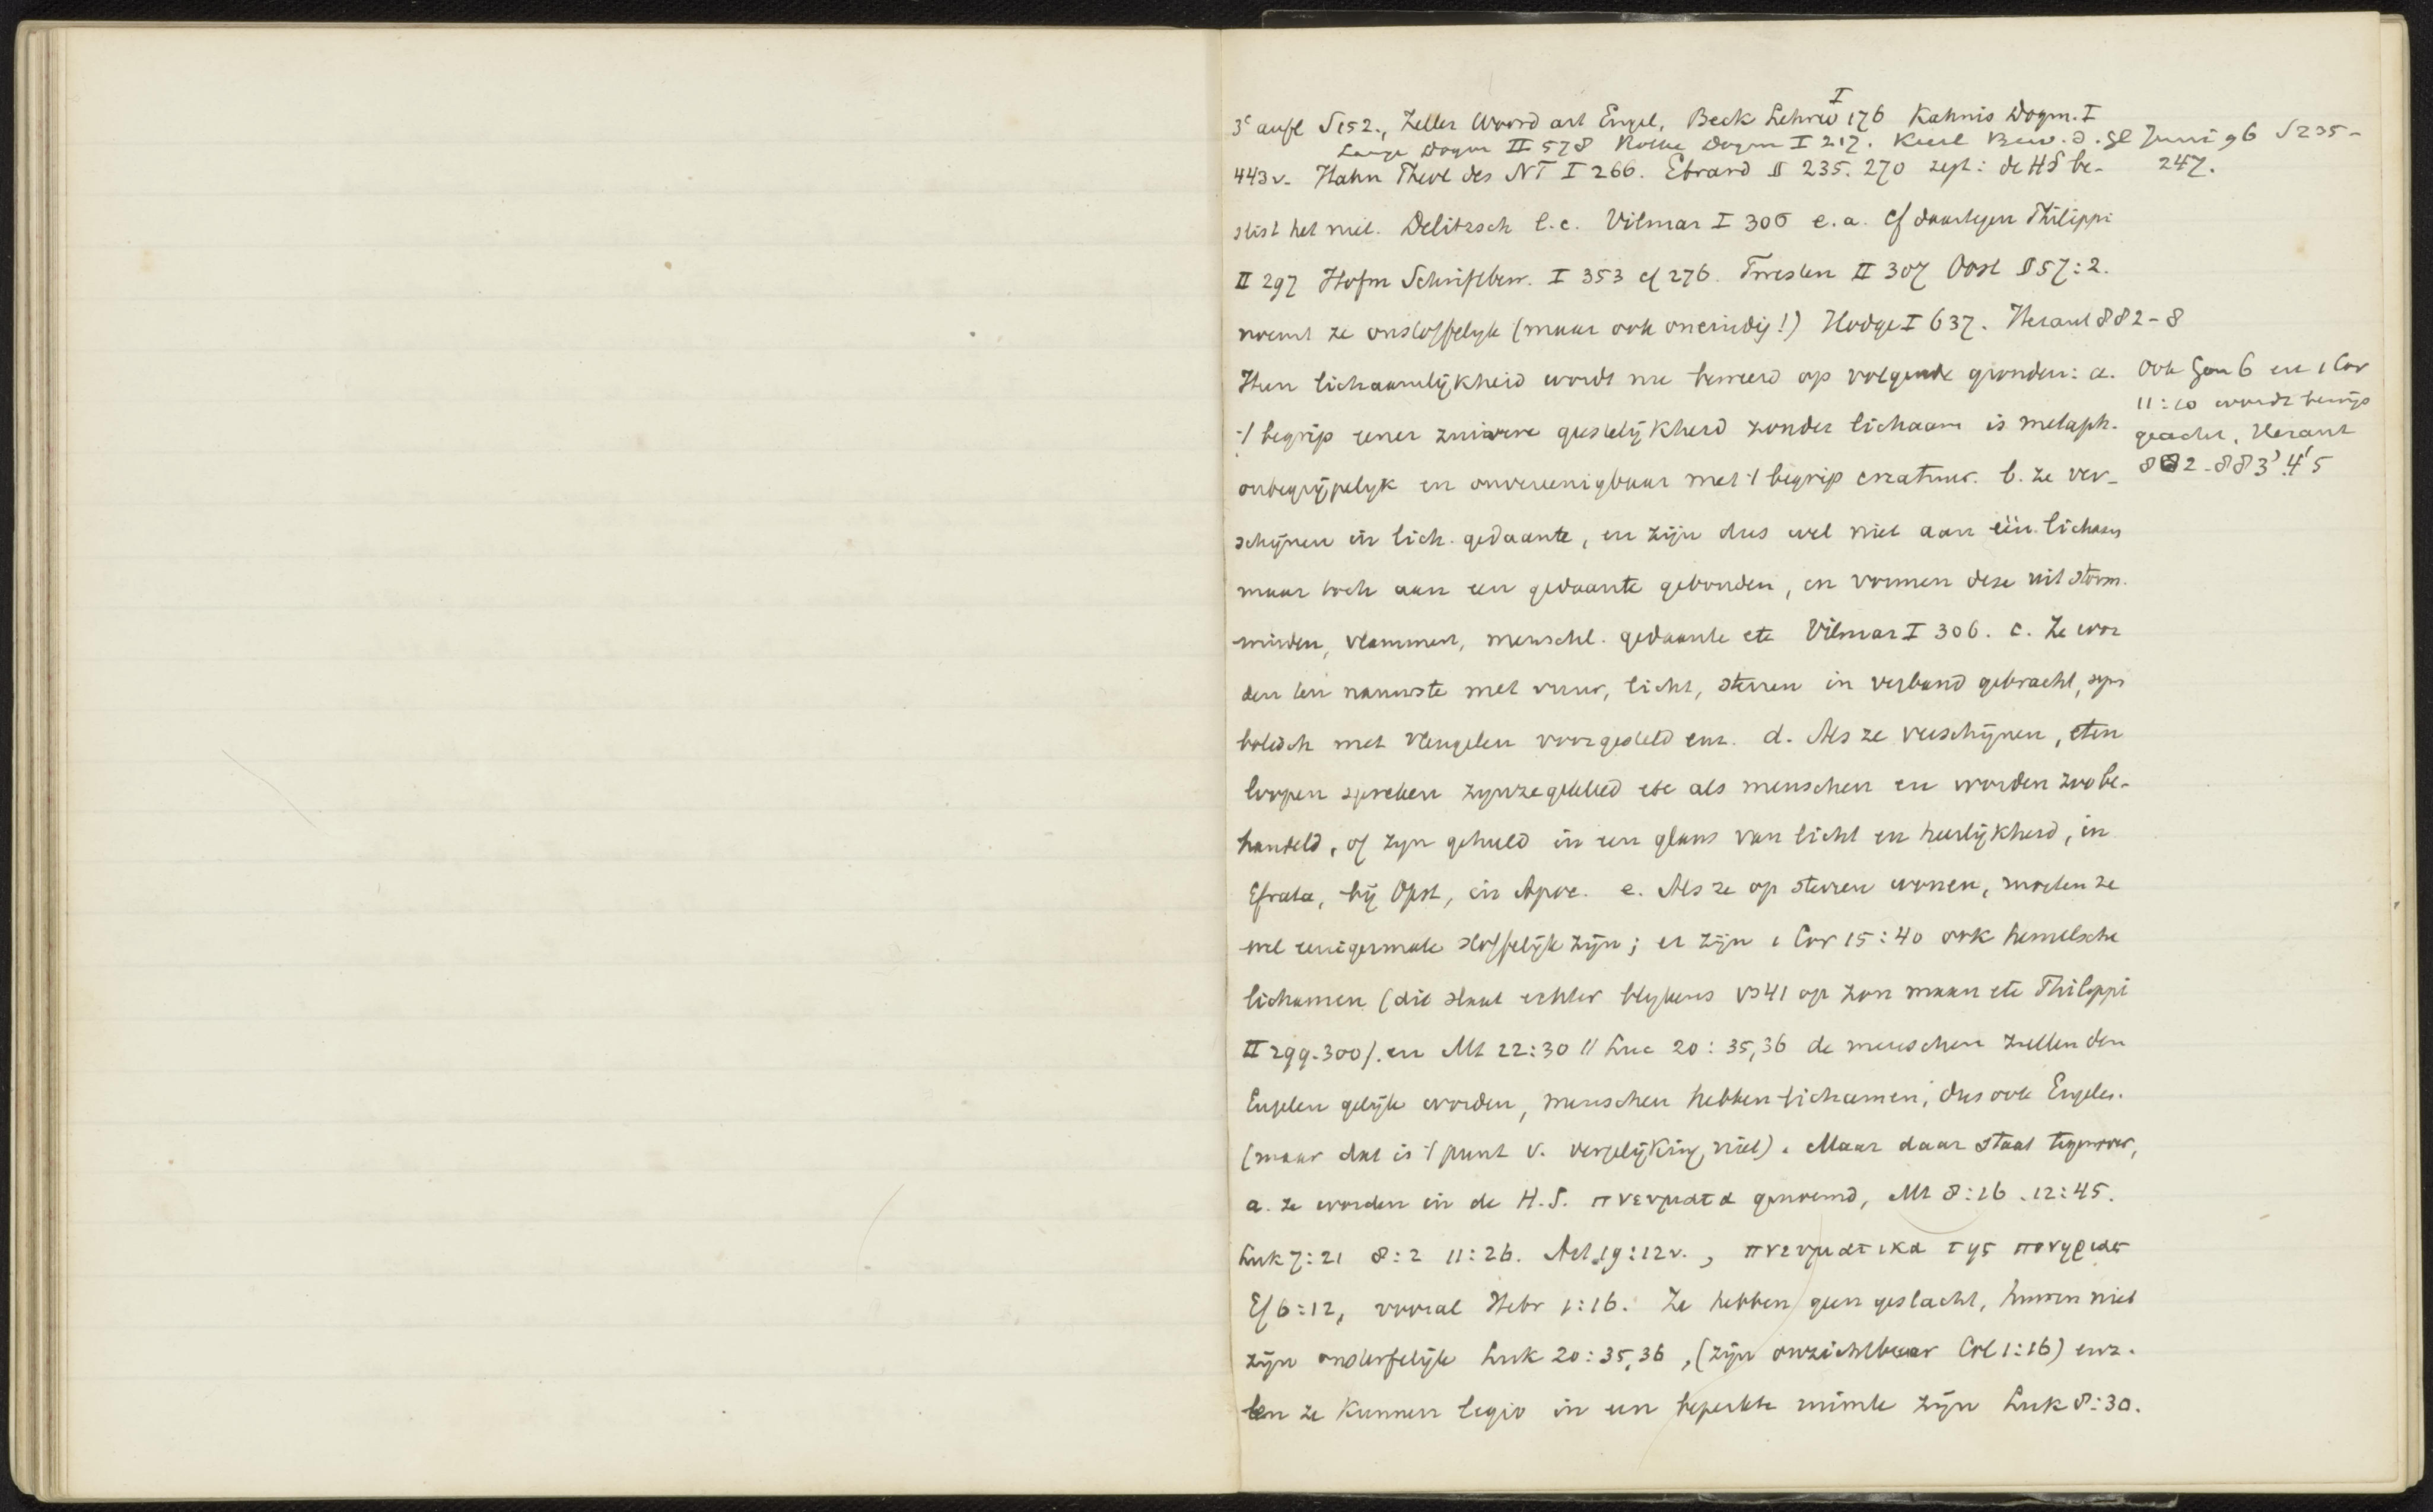 3e aufl S152., Zeller Woord art Engel, Beck Lehrw I 176 Kahnis Dogm. I
Lange Dogm II 578 Rothe Dogm I 217. Keerl Bew. d. Gl Juni 96 S235-
247.
443v. Hahn Theol des NT I 266. Ebrard § 235. 270 zegt: de HS be-
slist het niet. Delitzsch l.c. Vilmar I 306 e.a. Cf daartegen Philippi
II 297 Hofm Schriftbew. I 353 cf 276. Twesten II 307 Oost § 57:2.
noemt ze onstoffelijk (maar ook oneindig!) Hodge I 637. Heraut 882-8
Hun lichaamlijkheid wordt nu beweerd op volgende gronden: a.
Ook Gen 6 en 1 Cor
11:10 wordt bewijs
geacht, Heraut
882-883' 4' 5
't begrip eener zuivere geestelijkheid zonder lichaam is metaph.
onbegrijpelyk en onvereenigbaar met 't begrip creatuur. b. ze ver-
schijnen in lich. gedaante, en zijn dus wel niet aan één lichaam
maar toch aan een gedaante gebonden, en vormen deze uit storm-
winden, vlammen, menschl. gedaante etc Vilmar I 306. c. Ze wor
den ten nauwste met vuur, licht, sterren in verband gebracht, sym
bolisch met vleugelen voorgesteld enz. d. Als ze verschijnen, eten
loopen spreken zynze gekleed etc als menschen en worden zoo be-
handeld, of zyn gehuld in een glans van licht en heerlijkheid, in
Efrata, bij Opst, in Apoc. e. Als ze op sterren wonen, moeten ze
wel eenigermate stoffelijk zijn; er zijn 1 Cor 15:40 ook hemelsche
lichamen (dit slaat echter blykens vs41 op zon maan etc Philippi
II 299-300). en Mt 22:30 // Luc 20:35,36 de menschen zullen den
Engelen gelijk worden, menschen hebben lichamen, dus ook Engelen.
(maar dat is 't punt v. vergelijking niet). Maar daar staat tegenover,
a. ze worden in de H.S. πνευματα genoemd, Mt 8:16. 12:45.
Luk 7:21 8:2 11:26. Act. 19:12v., πνευματικα της πονηριας
Ef 6:12, vooral Hebr 1:16. Ze hebben geen geslacht, huwen niet
zijn onsterfelijk Luk 20:35,36, (zijn onzichtbaar Col 1:16) enz.
en ze kunnen legio in een beperkte ruimte zijn Luk 8:30.